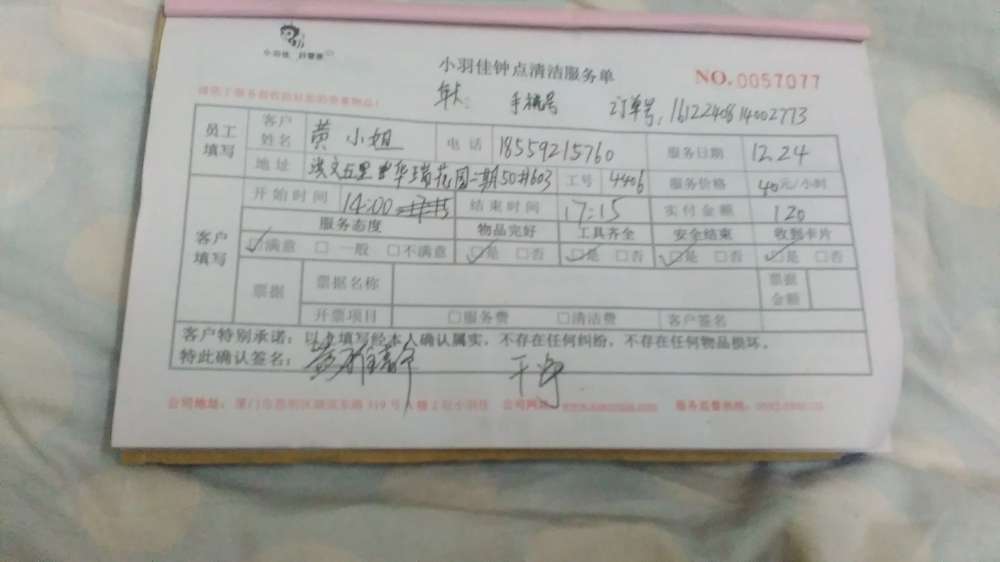 小羽佳
小羽佳钟点清洁服务单
NO.0057077
手机号 订单号:1612240814002773
员工填写
客户姓名 黄小姐 电话 18559215760 服务日期 12.24
地址 洪文五里 华瑞花园二期50#603 工号 4406 服务价格 40元/小时
客户填写
开始时间 14:00 结束时间 17:15 实付金额 120
服务态度 物品完好 工具齐全 安全结束 收到卡片
☑满意 □一般 □不满意 ☑是 □否 ☑是 □否 ☑是 □否 ☑是 □否
票据 票据名称 票据金额
开票项目 □服务费 □清洁费 客户签名
客户特别承诺:以上填写经本人确认属实,不存在任何纠纷,不存在任何物品损坏。
特此确认签名: 干净
公司地址:厦门市思明区